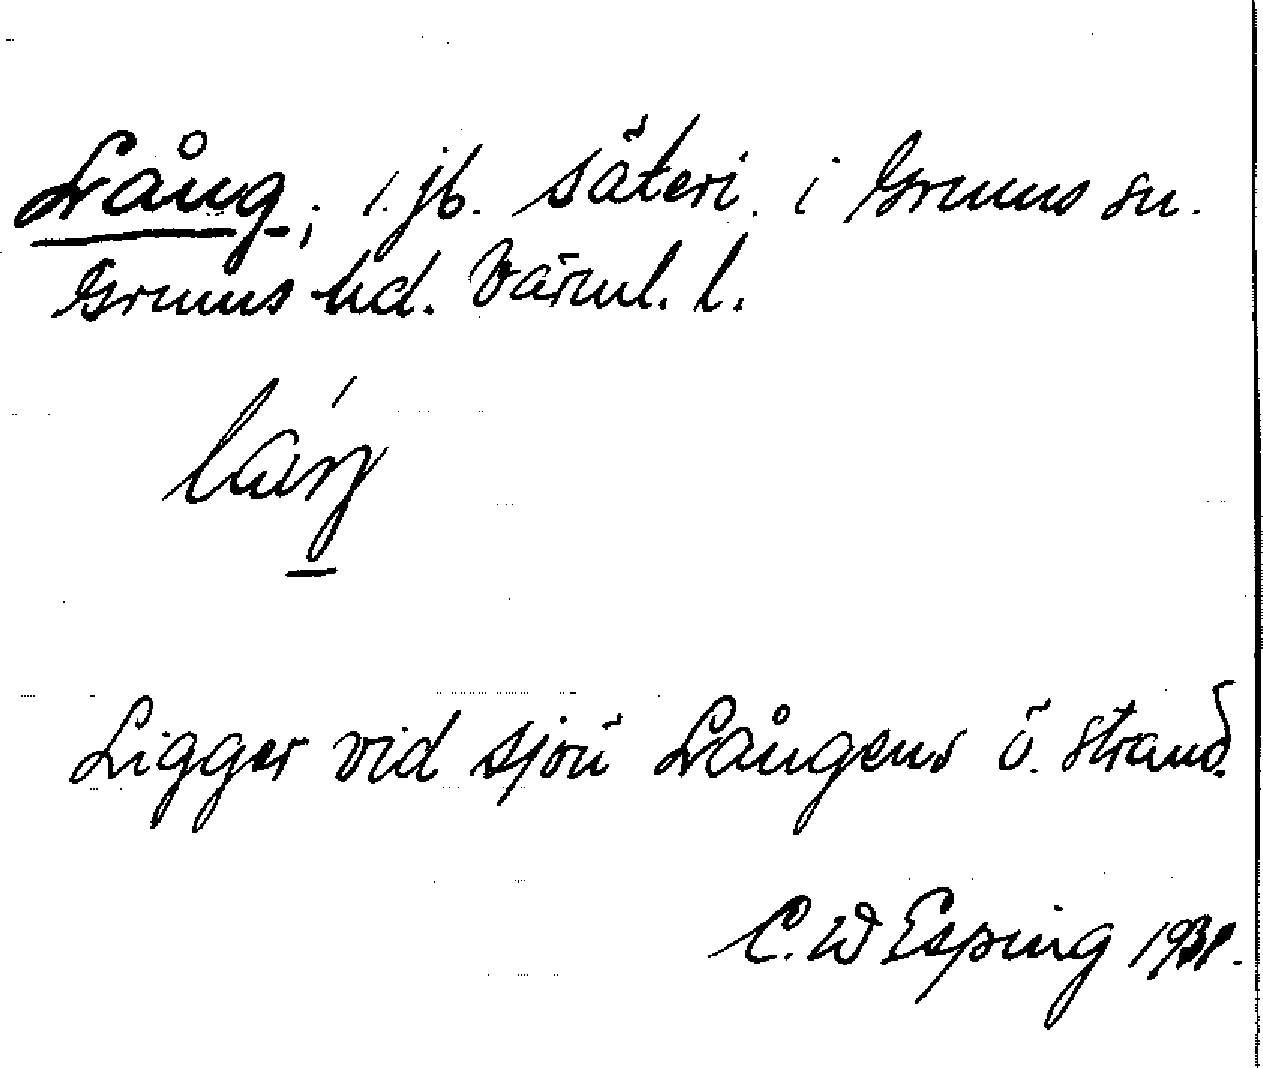 Lång; i. jb. säteri. i Grums sn.
Grums hd. Värml. l.
Ligger vid sjön Långens ö. strand.
C. W Esping